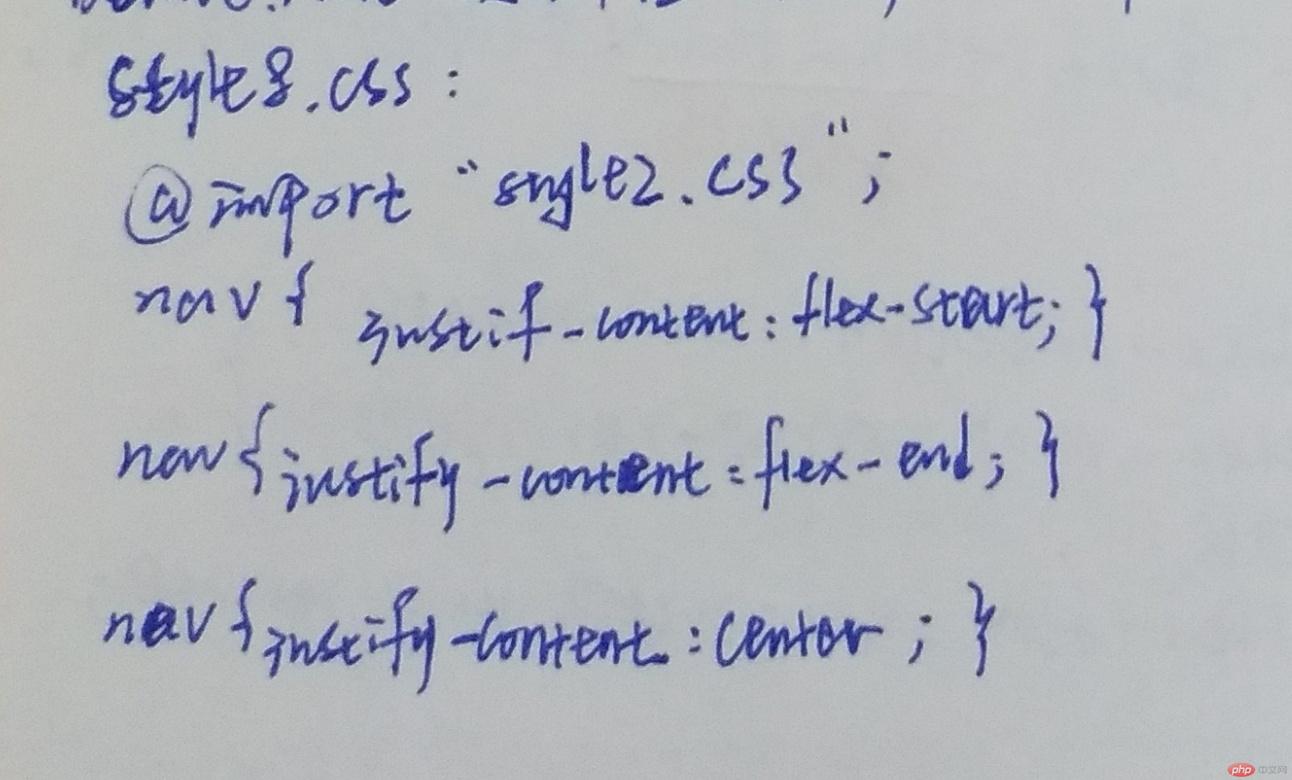 style8.css :
@import "style2.css" ;
nav { justif-content : flex-start; }
nav { justify-content : flex-end; }
nav { justify-content : center ; }
php 中文网